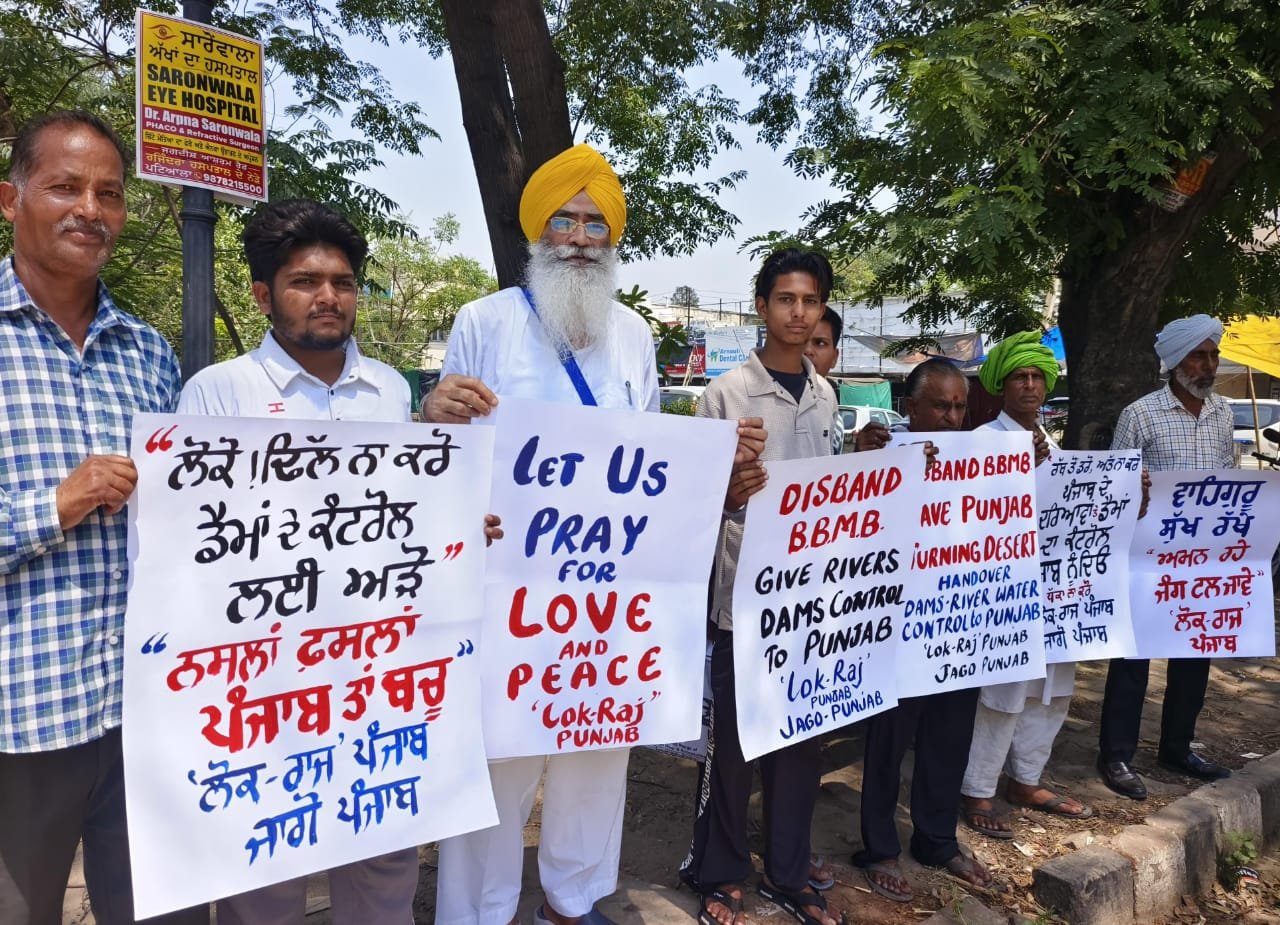 ਸਾਰੋਂਵਾਲਾ
ਅੱਖਾਂ ਦਾ ਹਸਪਤਾਲ
SARONWALA
EYE HOSPITAL
Dr. Arpna Saronwala
PHACO & Refractive Surgeon
ਜਗਦੀਸ਼ ਆਸ਼ਰਮ ਰੋਡ
ਰਜਿੰਦਰਾ ਹਸਪਤਾਲ ਦੇ ਨੇੜੇ
ਪਟਿਆਲਾ 9878215500
"ਲੋਕੋ! ਢਿੱਲ ਨਾ ਕਰੋ
ਡੈਮਾਂ ਦੇ ਕੰਟਰੋਲ
ਲਈ ਅੜੋ"
"ਨਸਲਾਂ ਫ਼ਸਲਾਂ
ਪੰਜਾਬ ਤਾਂ ਬਚੂ"
'ਲੋਕ-ਰਾਜ' ਪੰਜਾਬ
ਜਾਗੋ ਪੰਜਾਬ
LET US
PRAY
FOR
LOVE
AND
PEACE
"LOK-RAJ"
PUNJAB
DISBAND
B.B.M.B.
GIVE RIVERS
DAMS CONTROL
TO PUNJAB
'LOK-RAJ'
PUNJAB
JAGO-PUNJAB
SBAND B.B.M.B.
AVE PUNJAB
TURNING DESERT
HANDOVER
DAMS-RIVER WATER
CONTROL TO PUNJAB
'LOK-RAJ' PUNJAB
JAGO PUNJAB
ਪੰਜਾਬ ਦੇ
ਦਰਿਆਵਾਂ ਤੇ ਡੈਮਾਂ
ਦਾ ਕੰਟਰੋਲ
ਪੰਜਾਬ ਨੂੰ ਦਿਓ
ਧੱਕਾ ਨਾ ਕਰੋ
ਲੋਕ-ਰਾਜ ਪੰਜਾਬ
ਜਾਗੋ ਪੰਜਾਬ
ਵਾਹਿਗੁਰੂ
ਸੁੱਖ ਰੱਖੇ
"ਅਮਨ ਰਹੇ
ਜੰਗ ਟਲ ਜਾਵੇ"
'ਲੋਕ-ਰਾਜ'
ਪੰਜਾਬ
Dental